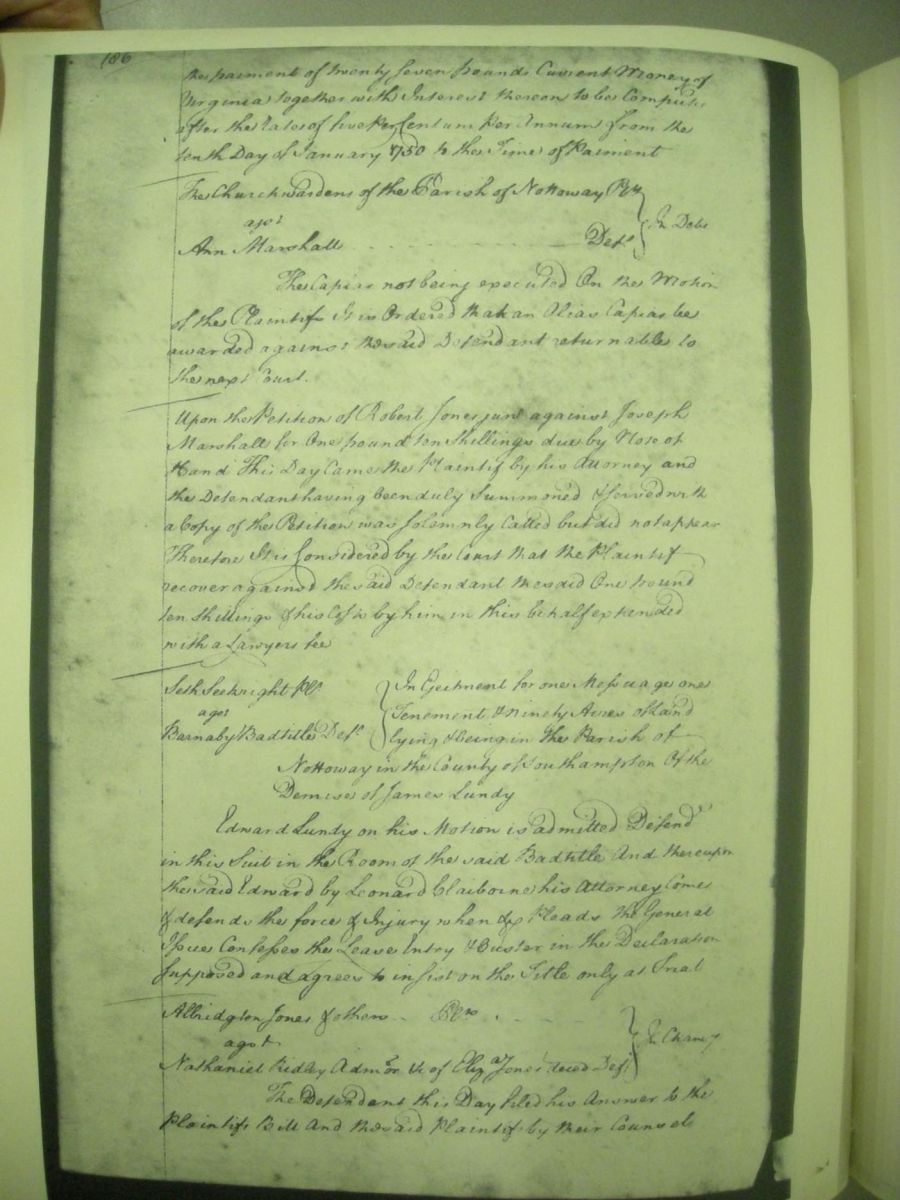 186
the paiment of twenty seven pounds Current Money of
Virginia together with Interest thereon to be Computed
after the rate of five Per Centum Per Annum from the
tenth Day of January 1750 to the Time of Paiment
The Churchwardens of the Parish of Nottoway Pltfs
agst
Ann Marshall Deft
In Debt
The Capias not being executed On the Motion
of the Plaintifs It is Ordered that an Alias Capias be
awarded against the said Defendant returnable to
the next Court.
Upon the Petition of Robert Jones junr against Joseph
Marshall for One pound ten Shillings due by Note of
Hand This Day Came the Plaintif by his Attorney and
the Defendant having been duly Summoned & served with
a Copy of the Petition was solemnly Called but did not appear
Therefore It is Considered by the Court that the Plaintif
recover against the said Defendant the said One pound
ten Shillings & his Costs by him in this behalf expended
with a Lawyers fee
Seth Seekright Pl
agst
Barnaby Badtitle Deft
In Ejectment for one Messuage one
Tenement & Ninety Acres of Land
lying & being in the Parish of
Nottoway in the County of Southampton Of the
Demise of James Lundy
Edward Lundy on his Motion is admitted Defendt
in this Suit in the Room of the said Badtitle And thereupon
the said Edward by Leonard Claiborne his Attorney Comes
& defends the force & Injury when &c Pleads the General
Issue Confesses the Lease Entry & Ouster in the Declaration
Supposed and agrees to insist on the Title only at Trial
Albridgton Jones & others Pltfs
agst
In Chancy
Nathaniel Ridley Admor &c of Elizath Jones deced Deft
The Defendant this Day filed his Answer to the
Plaintifs Bill And the said Plaintifs by their Counsel